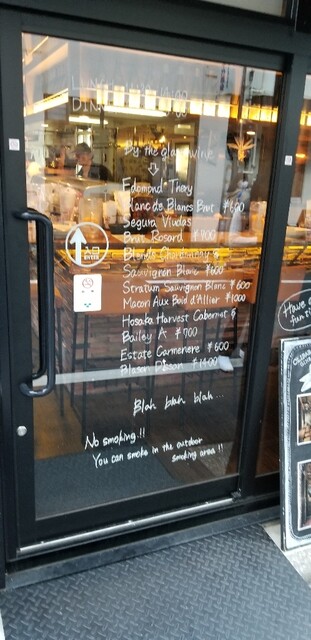 DINNER
By the glass wine
Edmond Thery
Blanc de Blancs Brut ¥600
Segura Viudas
Brut Rosard ¥700
Blends Chardonnay &
Sauvignon Blanc ¥600
Stratum Sauvignon Blanc ¥600
Macon Aux Bois d'Allier ¥1000
Hosaka Harvest Cabernet &
Bailey A ¥700
Estate Carmenere ¥600
Blason ¥1400
Blah blah blah...
ENTER
No smoking!!
You can smoke in the outdoor
smoking area!!
Have a
fun